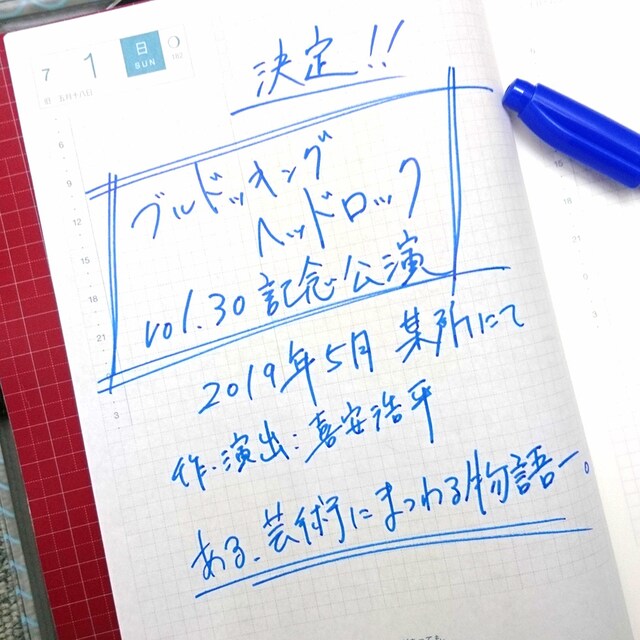 7 1 日
SUN
決定!!
ブルドッキング
ヘッドロック
vol.30 記念公演
2019年5月 某所にて
作・演出:喜安浩平
ある、芸術にまつわる物語ー。
6
9
12
15
18
21
3